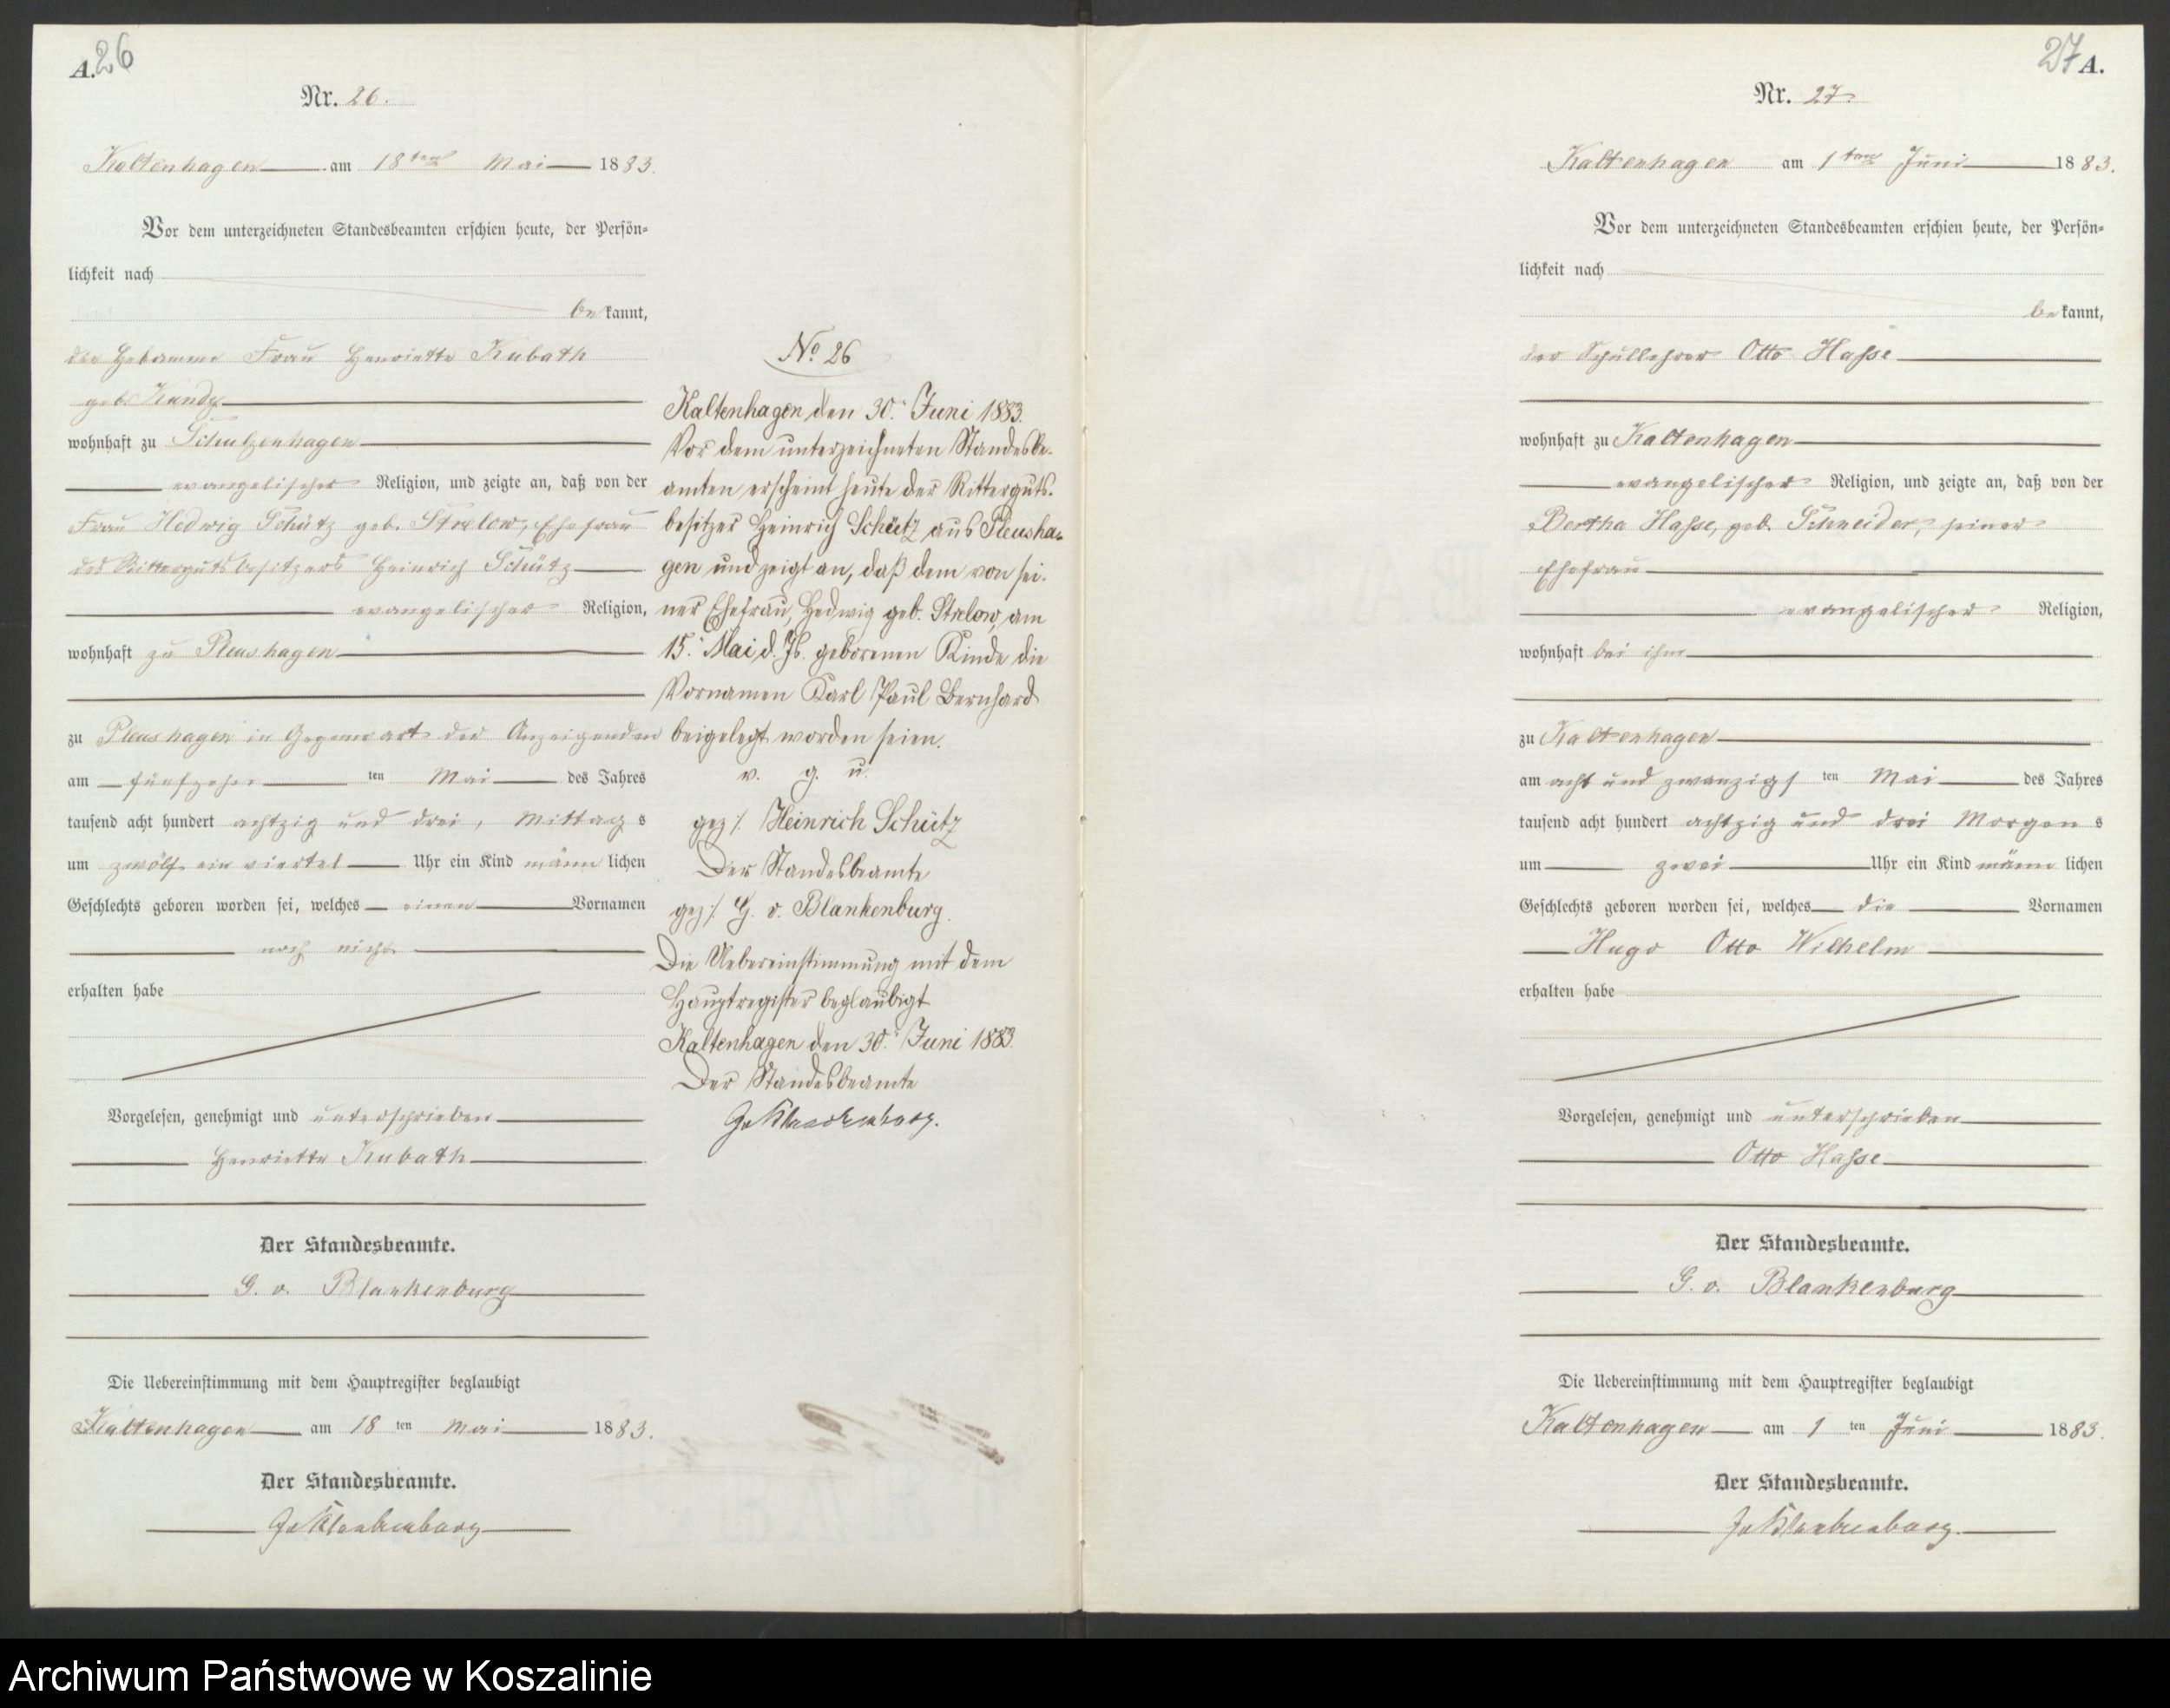 A. 26
Nr. 26.
Kaltenhagen am 18ten Mai 1883.
Vor dem unterzeichneten Standesbeamten erschien heute, der Persön-
lichkeit nach
be kannt,
die Hebamme Frau Henriette Kubath
geb.
wohnhaft zu Schulzenhagen
evangelischer Religion, und zeigte an, daß von der
Frau Hedwig Schütz geb. Strelow, Ehefrau
des Rittergutsbesitzers Heinrich Schütz
evangelischer Religion,
wohnhaft zu Pleushagen
zu Pleushagen in Gegenwart der Anzeigenden
am fünfzehn ten Mai des Jahres
tausend acht hundert achtzig und drei, Mittag s
um zwölf ein viertel Uhr ein Kind männ lichen
Geschlechts geboren worden sei, welches einen Vornamen
noch nicht
erhalten habe
Vorgelesen, genehmigt und unterschrieben
Henriette Kubath
Der Standesbeamte.
G. v. Blankenburg
Die Uebereinstimmung mit dem Hauptregister beglaubigt
Kaltenhagen am 18 ten Mai 1883.
Der Standesbeamte.
Gv Blankenburg
No 26
Kaltenhagen den 30. Juni 1883.
Vor dem unterzeichneten Standesbe-
amten erscheint heute der Ritterguts-
besitzer Heinrich Schütz aus Pleusha-
gen und zeigt an, daß dem von sei-
ner Ehefrau, Hedwig geb. Strelow, am
15. Mai d. Js. geborenen Kinde die
Vornamen Karl Paul Bernhard
beigelegt worden seien.
v. g. u.
gez/. Heinrich Schütz
Der Standesbeamte
gez/. G. v. Blankenburg.
Die Uebereinstimmung mit dem
Hauptregister beglaubigt
Kaltenhagen den 30. Juni 1883.
Der Standesbeamte
Gv Blankenburg.
27 A.
Nr. 27.
Kaltenhagen am 1ten Juni 1883.
Vor dem unterzeichneten Standesbeamten erschien heute, der Persön-
lichkeit nach
be kannt,
der Schullehrer Otto Hasse
wohnhaft zu Kaltenhagen
evangelischer Religion, und zeigte an, daß von der
Bertha Hasse, geb. Schneider, seiner
Ehefrau
evangelischer Religion,
wohnhaft bei ihm
zu Kaltenhagen
am acht und zwanzigs ten Mai des Jahres
tausend acht hundert achtzig und drei Morgen s
um zwei Uhr ein Kind männ lichen
Geschlechts geboren worden sei, welches die Vornamen
Hugo Otto Wilhelm
erhalten habe
Vorgelesen, genehmigt und unterschrieben
Otto Hasse
Der Standesbeamte.
G. v. Blankenburg
Die Uebereinstimmung mit dem Hauptregister beglaubigt
Kaltenhagen am 1 ten Juni 1883.
Der Standesbeamte.
Gv Blankenburg.
Archiwum Państwowe w Koszalinie